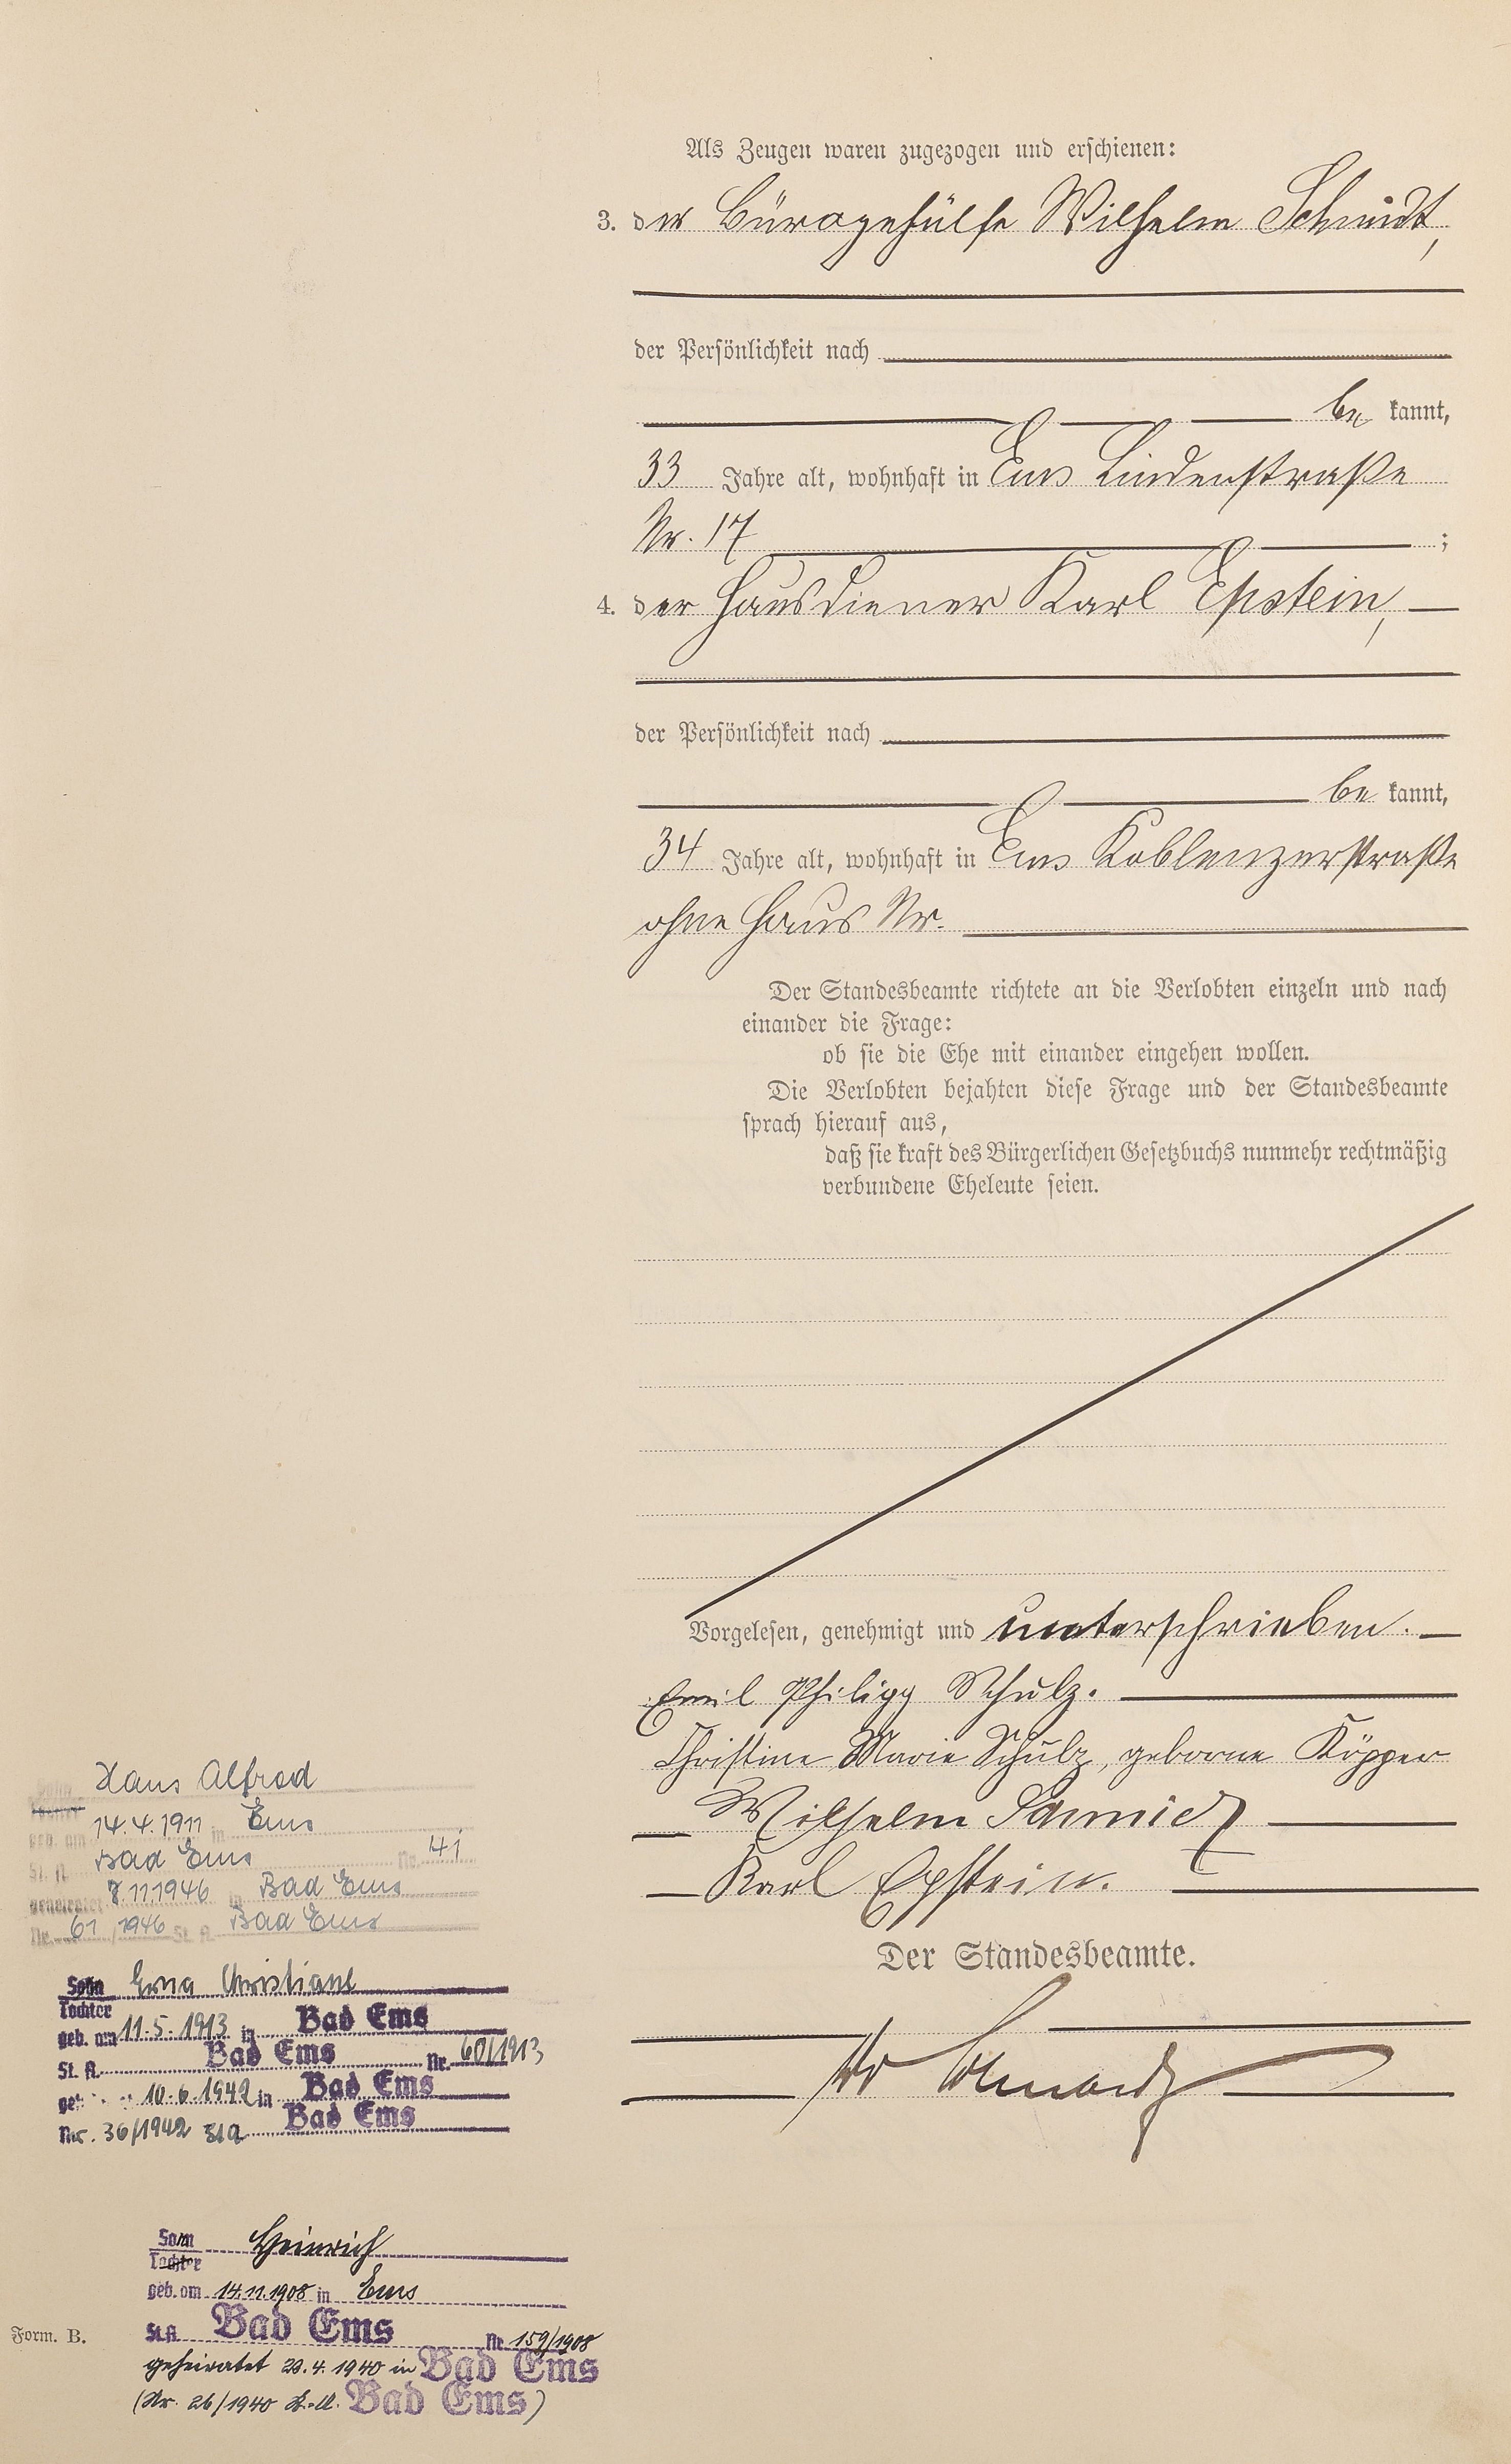 Als Zeugen waren zugezogen und erschienen:
3. der Bürogehülfe Wilhelm Schmidt,
der Persönlichkeit nach
be kannt,
33 Jahre alt, wohnhaft in Ems Lindenstraße
Nr. 17 ;
4. der Hausdiener Karl Epstein,
der Persönlichkeit nach
be kannt,
34 Jahre alt, wohnhaft in Ems Koblenzerstraße
ohne Haus Nr.
Der Standesbeamte richtete an die Verlobten einzeln und nach
einander die Frage:
ob sie die Ehe mit einander eingehen wollen.
Die Verlobten bejahten diese Frage und der Standesbeamte
sprach hierauf aus,
daß sie kraft des Bürgerlichen Gesetzbuchs nunmehr rechtmäßig
verbundene Eheleute seien.
Vorgelesen, genehmigt und unterschrieben.
Emil Philipp Schulz.
Christine Marie Schulz, geborne Köpper
Wilhelm Schmidt
Karl Epstein.
Der Standesbeamte.
Hans Alfred
geb. am 14.4.1911 in Ems
St. A. Bad Ems Nr. 41
geheiratet 7.11.1946 in Bad Ems
Nr. 61/1946 St. A. Bad Ems
Sohn Erna Christiane
Tochter
geb. am 11.5.1913 in Bad Ems
St. A. Bad Ems Nr. 60/1913
10.6.1942 in Bad Ems
Nr. 36/1942 StA Bad Ems
Sohn Heinrich
Tochter
geb. am 14.11.1908 in Ems
St.A. Bad Ems Nr. 159/1908
geheiratet 23.4.1940 in Bad Ems
(Nr. 26/1940 St.A. Bad Ems)
Form. B.